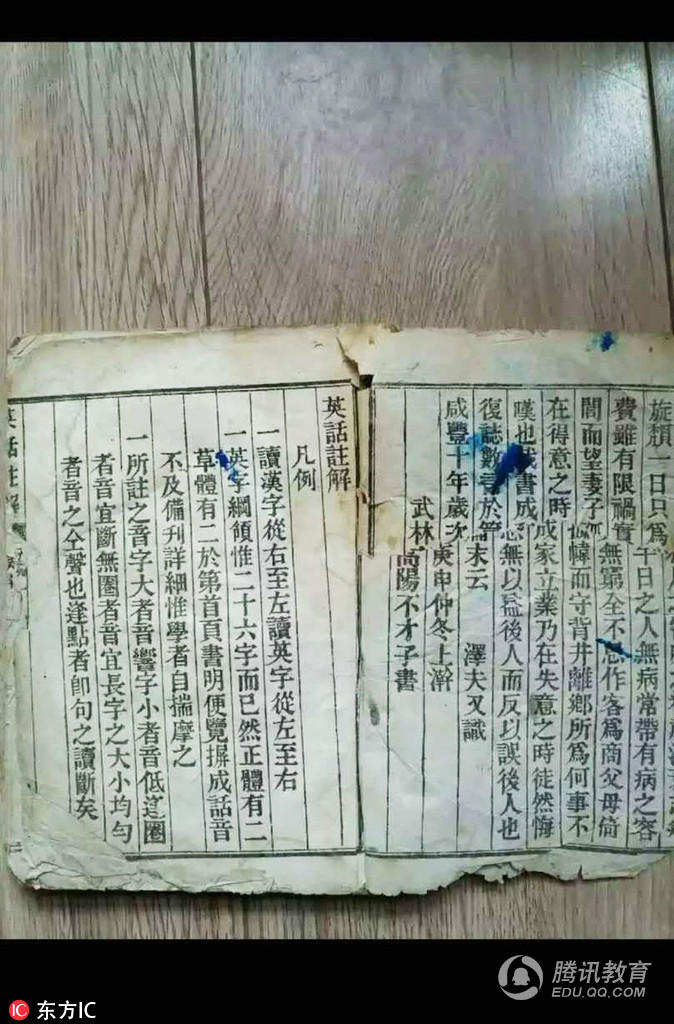 旋頹一日只爲
千日之人無病常帶有病之容
費雖有限禍實
無窮全不思作客爲商父母倚
閭而望妻子
幃而守背井離鄉所爲何事不
在得意之時
成家立業乃在失意之時徒然悔
嘆也 書成
無以益後人而反以誤後人也
復誌數 於
末云 澤夫又識
咸豐十年歲次
庚申仲冬上澣
武林
高陽不才子書
英話註解
凡例
一讀漢字從右至左讀英字從左至右
一英字綱領惟二十六字而已然正體有二
草體有二於第首頁書明便覽摒成話音
不及備刊詳細惟學者自揣摩之
一所註之音字大者音響字小者音低逢圈
者音宜斷無圈者音宜長字之大小均勻
者音之全聲也逢點者即句之讀斷矣
英話註解
二
腾讯教育
EDU.QQ.COM
IC 东方IC